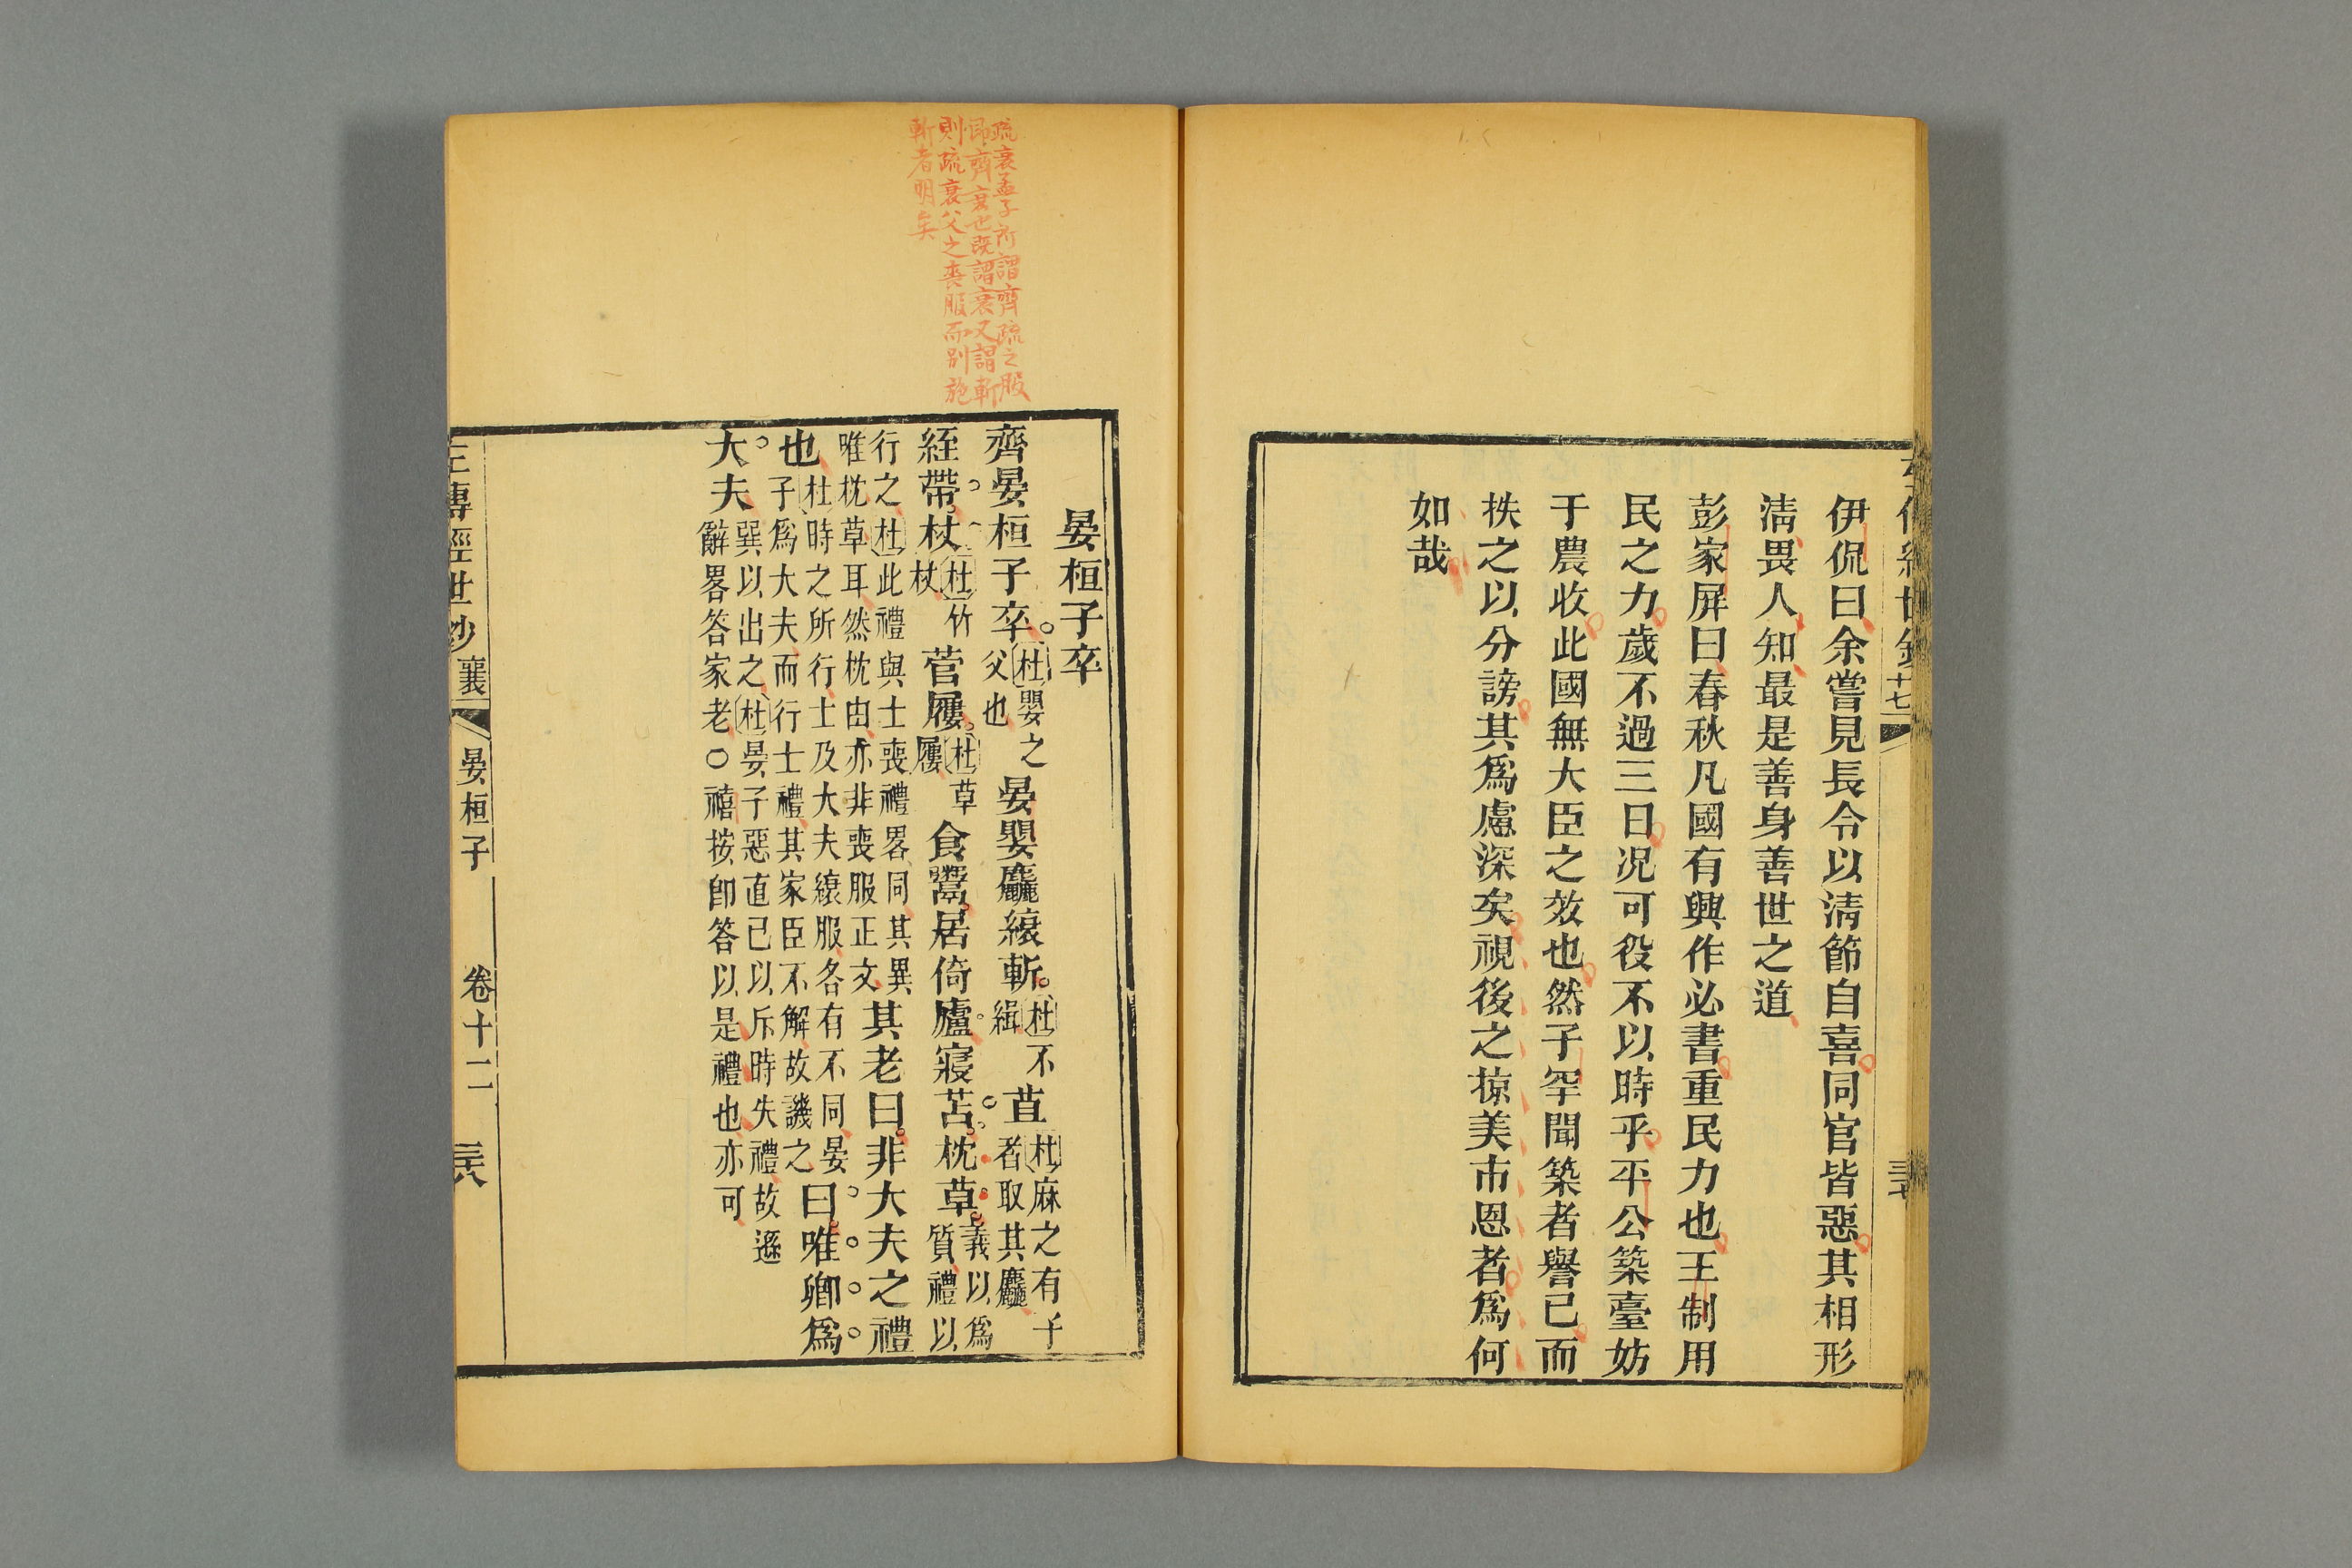 十七
伊侃曰余嘗見長令以清節自喜同官皆惡其相形
清畏人知最是善身善世之道
彭家屏曰春秋凡國有興作必書重民力也王制用
民之力歲不過三日况可役不以時乎平公築臺妨
于農收此國無大臣之效也然子罕聞築者譽已而
抶之以分謗其爲慮深矣視後之掠美市恩者爲何
如哉
疏衰孟子所謂齊疏之服
卽齊衰也既謂衰又謂斬
則疏衰父之喪服而別施
斬者明矣
晏桓子卒
齊晏桓子卒。杜嬰之父也晏嬰麤縗斬。杜不緝苴杜麻之有子者取其麤
絰帶。杖杜竹杖菅屨。杜草屨食鬻居倚廬。寢苫。枕草。義以爲質禮以
行之杜此禮與士喪禮畧同其異唯枕草耳然枕甴亦非喪服正文其老曰。非大夫之禮
也杜時之所行士及大夫縗服各有不同晏子爲大夫而行士禮其家臣不解故譏之曰。唯卿爲
大夫。巽以出之杜晏子惡直已以斥時失禮故遜辭畧答家老○禧按卽答以是禮也亦可
傳經世鈔 襄 晏桓子 卷十二 三十八